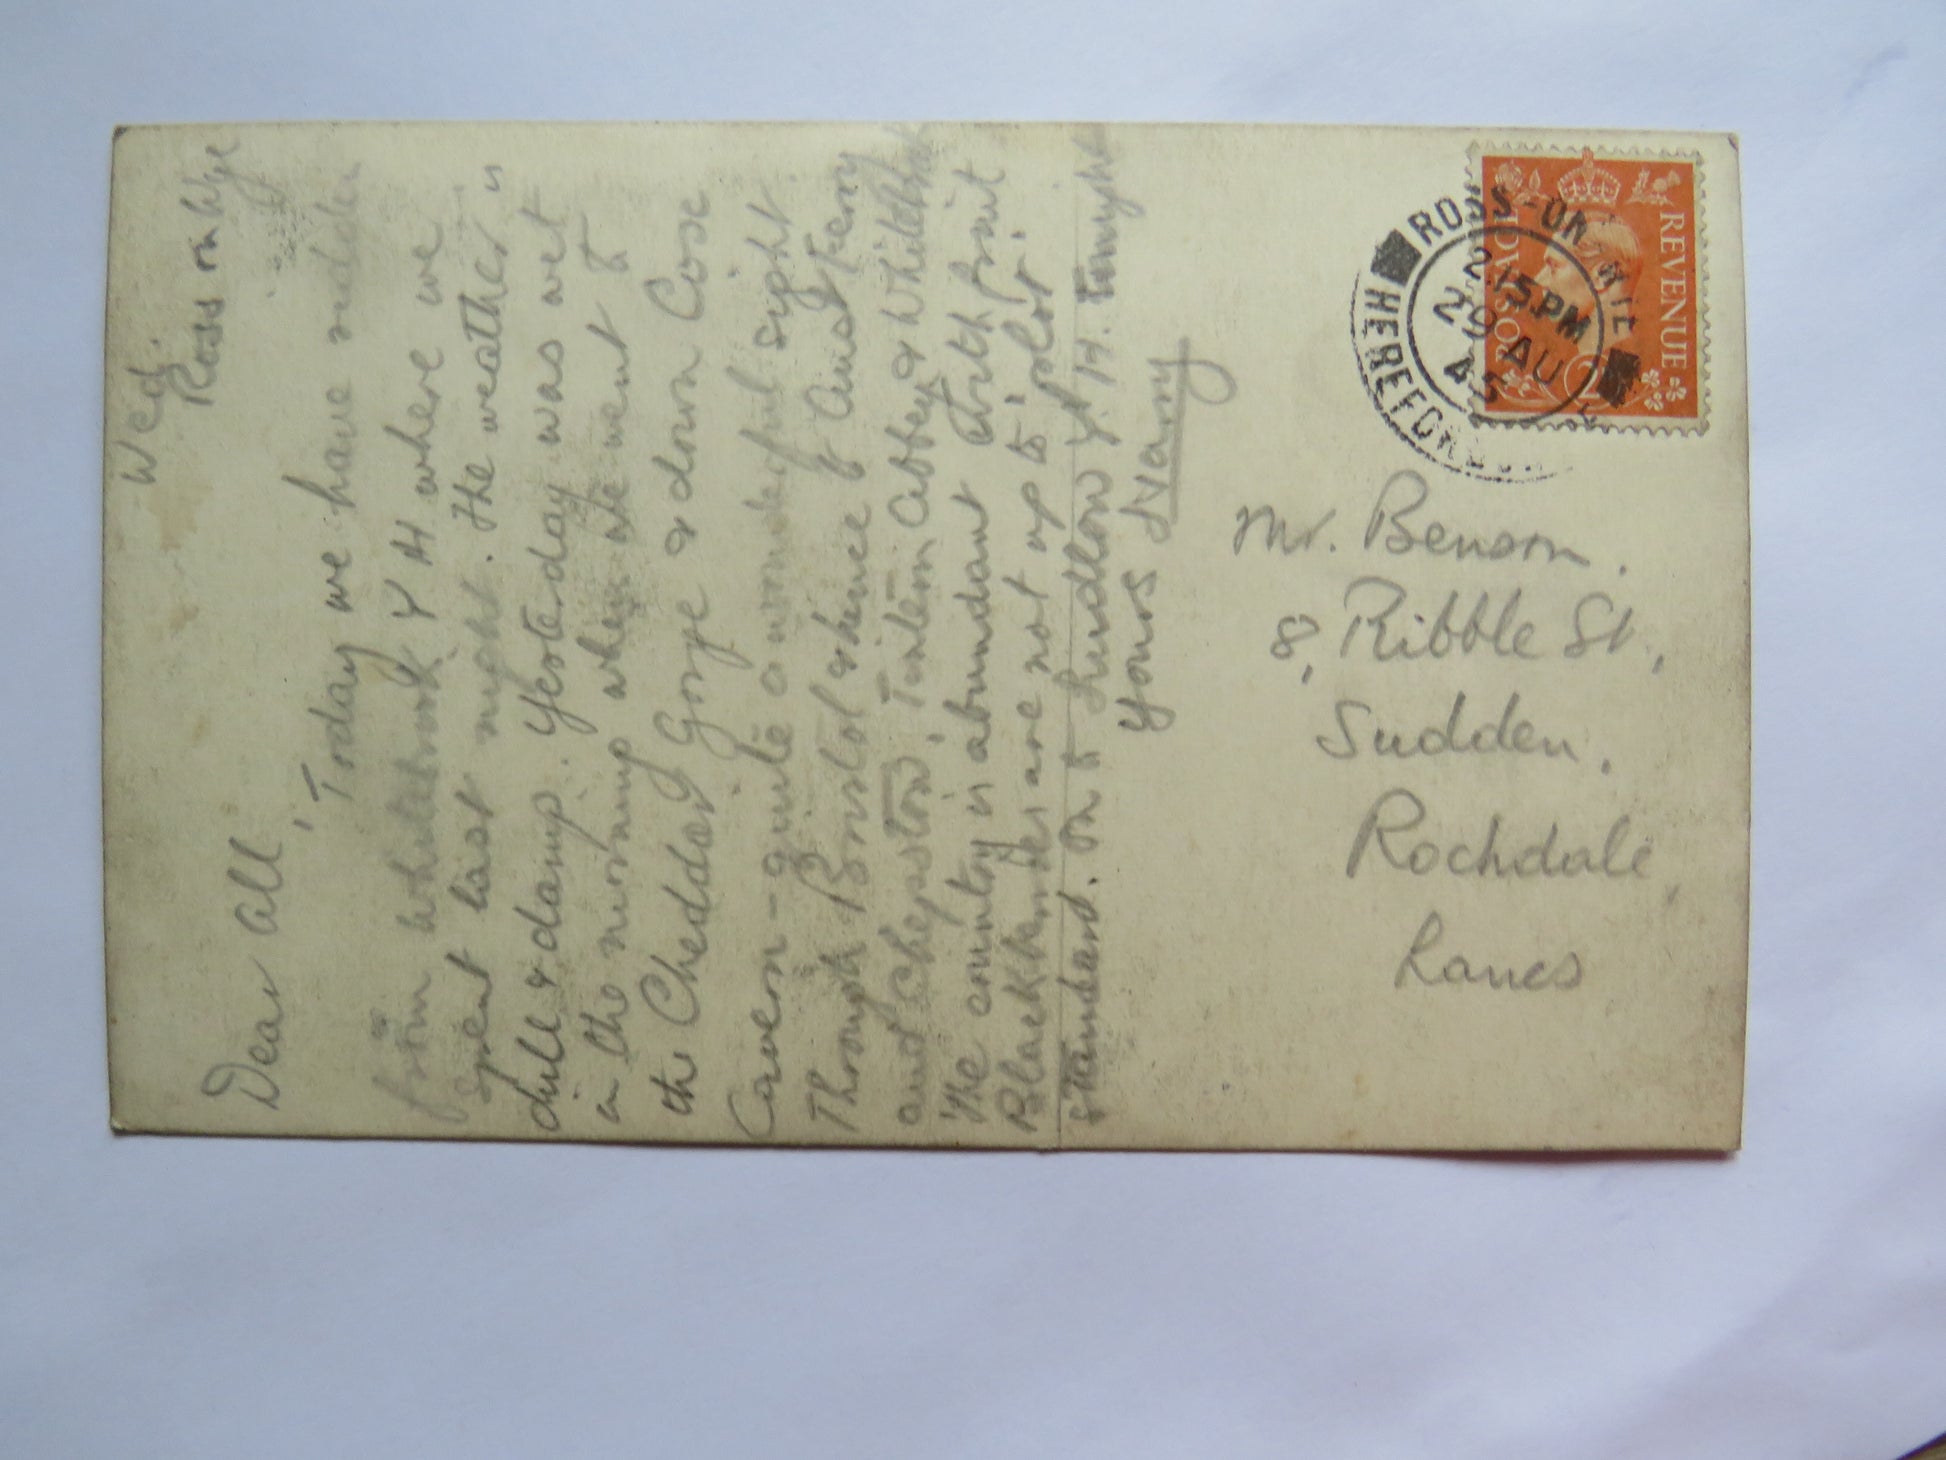 Wed.
Ross on Wye
Dear all,
Today we have ridden
from Whitebrook Y H where we
spent last night. The weather is
dull & damp. Yesterday was wet
in the morning when we went to
the Cheddar Gorge & down Cose
Cavern - quite a wonderful sight.
Through Bristol & thence to Aust Ferry
and Chepstow, Tintern Abbey & Whitebrook
The country is abundant with fruit
Blackberries are not up to
standard. On to Ludlow Y.H. tonight
Yours Harry
Mr. Benson.
8, Ribble St,
Sudden.
Rochdale,
Lancs
ROSS-ON-WYE
2.15 PM
29 AU
45
HEREFORDSHIRE
POSTAGE
REVENUE